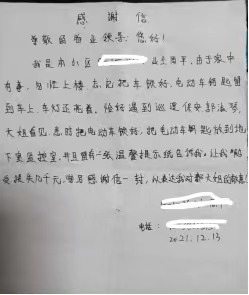 感谢信
尊敬的物业领导：您好！
我是本小区 业主 ，由于家中
有事，自行上楼，忘记把车锁好，电动车钥匙留
到车上，车灯还亮着，恰好遇到巡逻保安郭
大姐看见，及时把电动车锁好，把电动车钥匙放到地
下室监控室，并且留有一纸温馨提示纸告诉我，让我免
受损失几千元，特写感谢信一封，以表达我对郭大姐的敬意！
电话：
2021.12.13